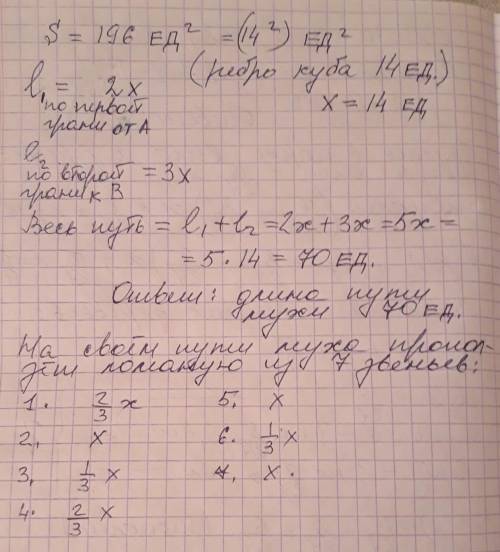 S = 196 ЕД² = (14²) ЕД²
(ребро куба 14 ЕД.)
l₁ = 2x
по первой
грани от А
x = 14 ЕД
l₂
по второй = 3x
грани к В
Весь путь = l₁ + l₂ = 2x + 3x = 5x =
= 5 · 14 = 70 ЕД.
Ответ: длина пути
мухи 70 ЕД.
На своём пути муха пропол-
зёт ломаную из 7 звеньев:
1. 2/3 x
2, x
3, 1/3 x
4. 2/3 x
5. x
6. 1/3 x
7. x.